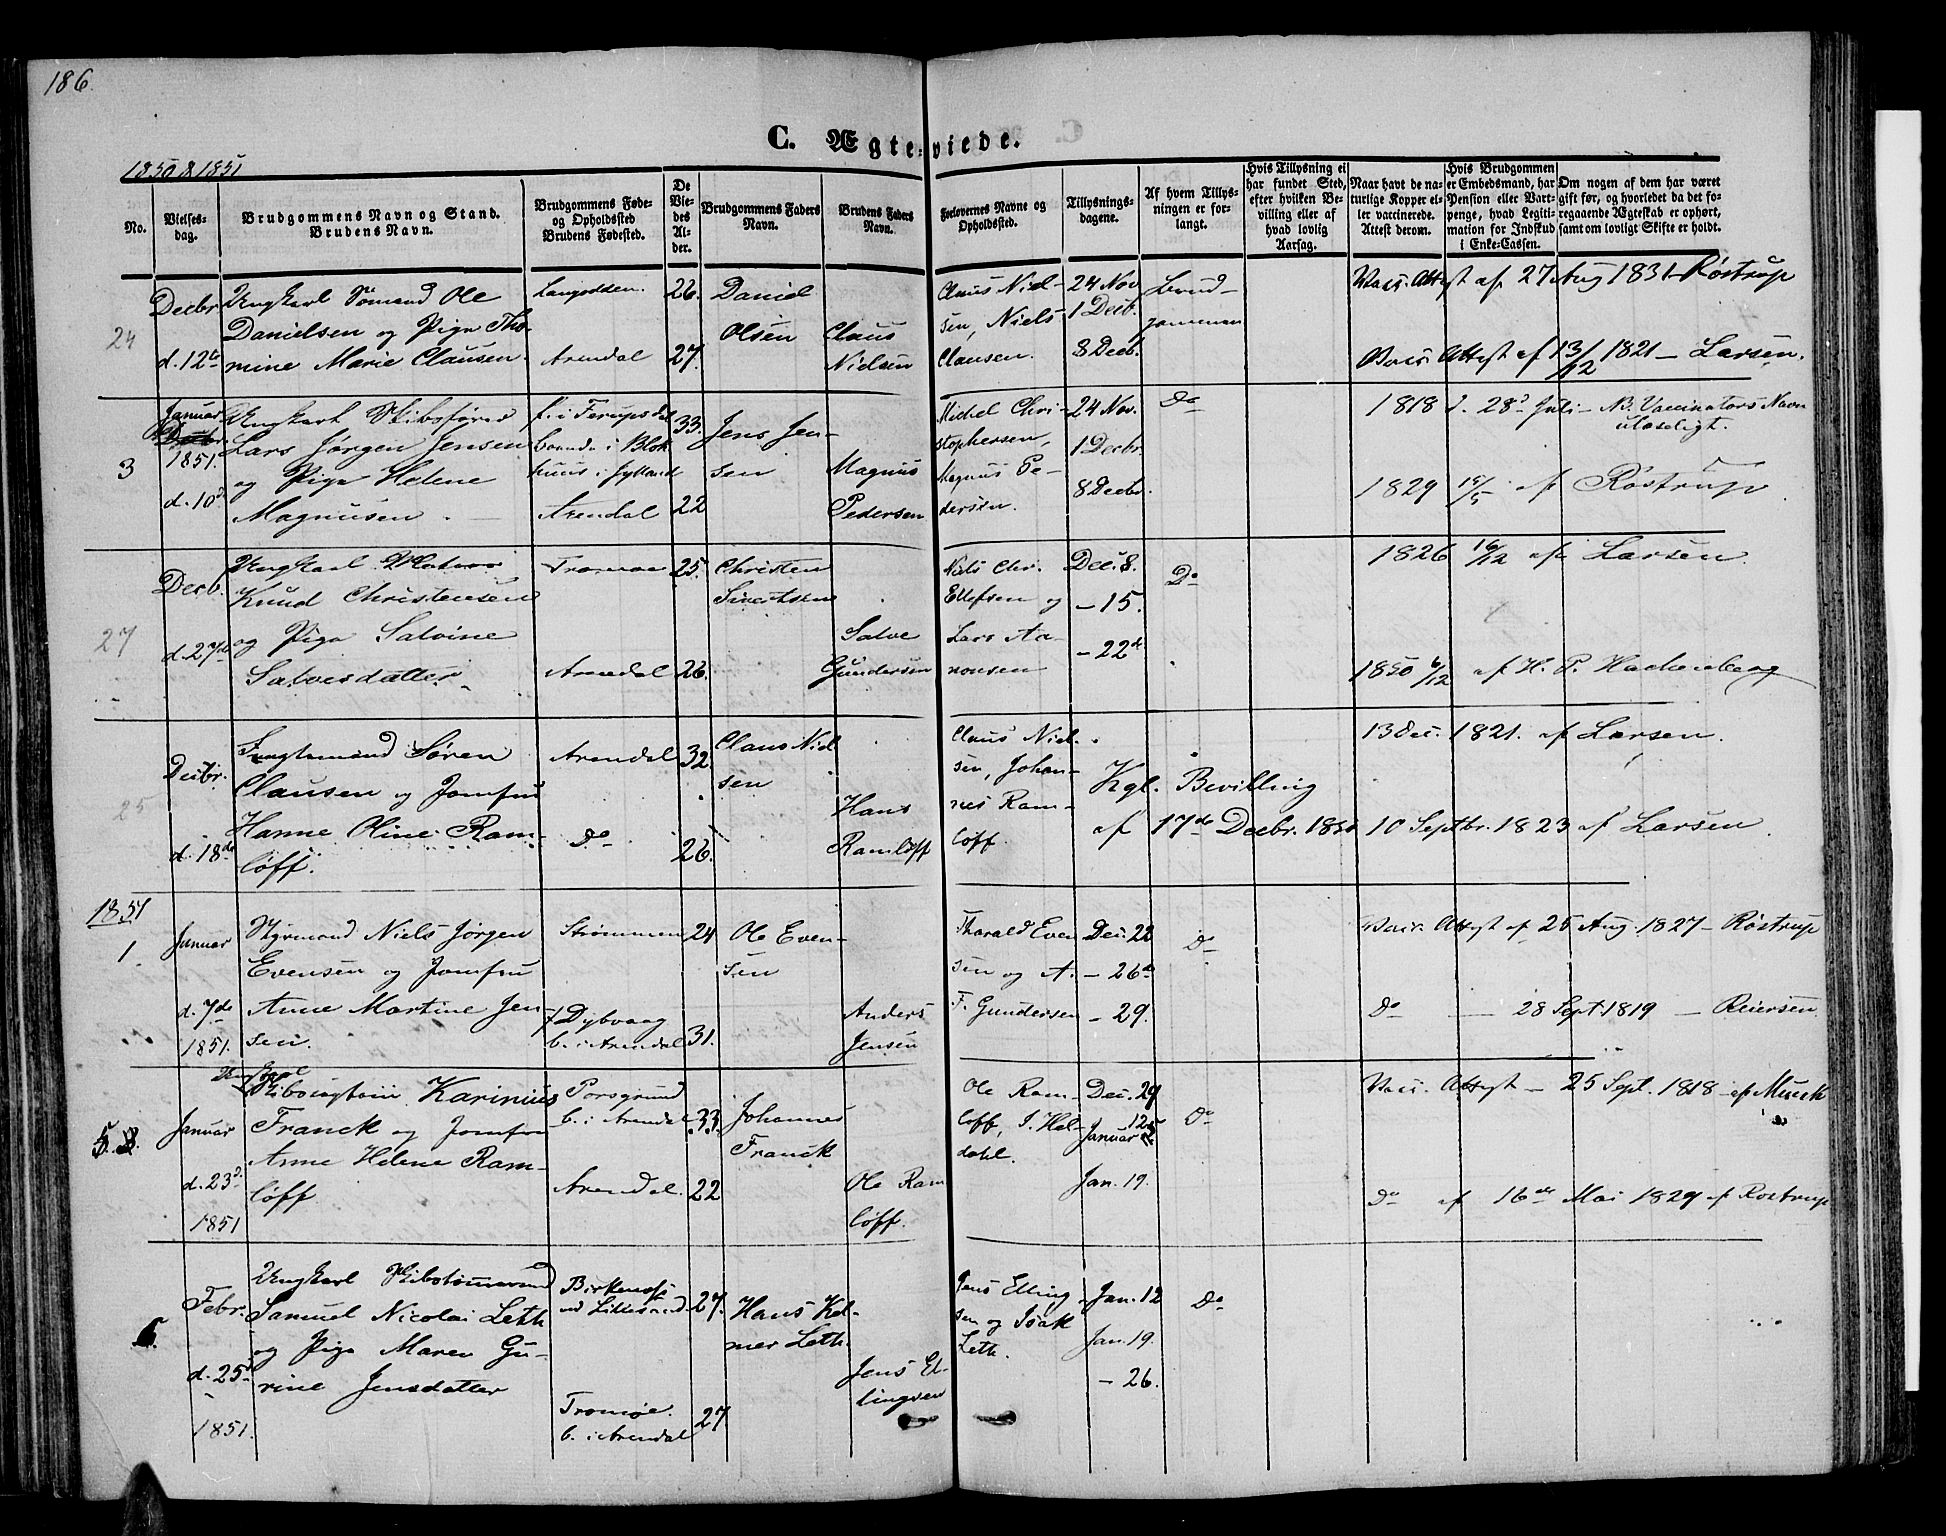 186.
C. Ægteviede.
1850 & 1851
No.
Vielses-
dag.
Brudgommens Navn og Stand.
Brudens Navn.
Brudgommens Føde-
og Opholdssted
Brudens Fødested.
De
Vie-
des
Al-
der.
Brudgommens Faders
Navn.
Brudens Faders
Navn.
Forlovernes Navne og
Opholdssted.
Tillysnings-
dagene.
Af hvem Tillys-
ningen er for-
langt.
Hvis Tillysning ei
har fundet Sted,
efter hvilken Be-
villing eller af
hvad lovlig
Aarsag.
Naar havt de na-
turlige Kopper el-
ler vaccinerede.
Attest derom.
Hvis Brudgommen
er Embedsmand, har
Pension eller Vart-
penge, hvad Legiti-
mation for Indskud
i Enke-Cassen.
Om nogen af dem har været
gift før, og hvorledet da det fo-
regaaende Ægteskab er ophørt,
samt om lovligt Skifte er holdt.
24
Decbr.
d. 12te
Ungkarl Sømand Ole
Danielsen og Pige Tho-
mine Marie Clausen.
Arendal
26.
27.
Daniel
Olsen
Claus
Nielsen
Claus Niel-
sen, Niels
Clausen.
24 Nov
1 Decb.
8 Decb.
Brud-
gommen
Vacc. Attest af 27 Aug 1831 - Røstrup
Vacc. Attest af 13/12 1821 - Larsen.
3
Januar
1851.
d. 10d
Ungkarl Skibsfører
Lars Jørgen Jensen
og Pige Helene
Magnusen.
huus i Jylland
Arendal
33.
22
Jens Jen-
sen
Magnus
Pedersen
Michel Chri-
stophersen,
Magnus Pe-
dersen.
24 Nov.
1 Decbr.
8 Decbr.
Do
1818 d. 28d Juli - NB. Vaccinators Navn
ulæseligt.
1829 19/5 af Røstrup.
27
Decb.
d. 27de
Ungkarl Matros
Knud Christensen
og Pige Salvine
Salvesdatter.
Tromøe
Arendal
25.
26.
Christen
Sivertsen
Salve
Gundersen
Niels Chr.
Ellefsen og
Lars Aa-
nonsen
Dec. 8.
- 15.
- 22de
Do
1826 16/12 af Larsen.
1850 6/12 af H. P. Hackenberg
25
Decbr.
d. 18de
Søren
Clausen og Jomfru
Hanne Oline Ram-
löff.
Arendal
do
32.
26.
Claus Niel
sen
Hans
Ramlöff
Claus Niel-
sen, Johan-
nes Ram-
löff.
Kgl. Bevilling
af 17de Decbr. 1850
13 Dec. 1821. af Larsen.
10 Septbr. 1823 af Larsen.
1851
1.
Januar
d. 7de
1851.
Styrmand Niels Jørgen
Evensen og Jomfru
Anne Martine Jen
sen.
Strømmen
f. Dybvaag
b. i Arendal
24
31.
Ole Even-
sen
Anders
Jensen
Tharald Even
sen og A.
F. Gundersen
Dec. 22
- 26de
- 29.
do
Vacc. Attest af 25 Aug. 1827 - Røstrup
do - 28 Sept. 1819 - Reiersen.
5.
Januar
d. 23d
1851
Ungkarl
Karinius
Franck og Jomfru
Anne Helene Ram-
löff
Porsgrund
b. i Arendal
Arendal.
33.
22
Johannes
Franck
Ole Ram
löff.
Ole Ram-
löff, J. Hel-
dahl.
Dec. 29
Januar 12te
Jan. 19.
Do
Vacc. Attest - 25 Sept. 1818 - af Munck
do af 16de Mai 1829 af Røstrup
6.
Febr.
d. 25d
1851.
Ungkarl Skibstømmermand
Samuel Nicolai Leth
og Pige Maren Gu-
rine Jensdatter
Tromøe.
b. i Arendal
27.
27
Hans Kel-
mer Leth.
Jens El-
lingsen
Jens Elling-
sen og Isak
Leth.
Jan. 12
Jan. 19.
- 26.
Do